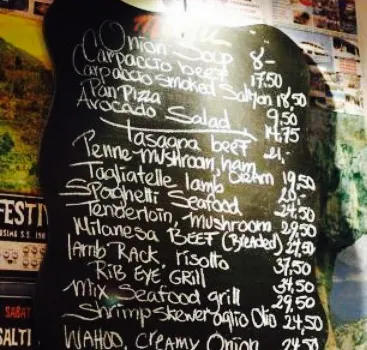 Menu
Onion Soup 8,-
Carpaccio beef 17,50
Carpaccio smoked Salmon 18,50
Pan Pizza 9,50
Avocado Salad 14,75
Lasagna beef 21,-
Penne mushroom, ham, cream 19,50
Tagliatelle lamb 20,-
Spaghetti Seafood 24,50
Tenderloin, mushroom 29,50
Milanesa BEEF (Breaded) 27,50
lAMB RACK, risotto 37,50
RiB EYE GRILL 34,50
Mix Seafood grill 29,50
Shrimp skewer aglio olio 24,50
WAHOO, creamy Onion 24,50
FESTI
SABAT
SALTI